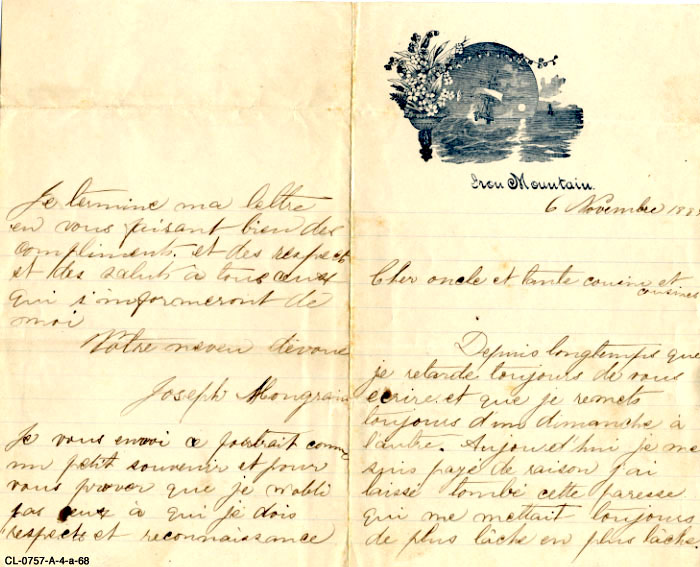 Iron Mountain.
6 Novembre 188
Cher oncle et tante cousin et
cousines
Depuis longtemps que
je retarde toujours de vous
ecrire. et que je remets
toujours d'un dimanche à
l'autre. Aujourd'hui je me
suis payé de raison j'ai
laissé tombé cette paresse
qui me mettait toujours
de plus lâche en plus lâche.
Je termine ma lettre
en vous faisant bien des
compliments et des respects
et des saluts a tous ceux
qui s'informeront de
moi
Votre neveu dévoué
Joseph Mongrain
Je vous envoi ce portrait comme
un petit souvenir et pour
vous prouver que je n'obli
pas ceux à qui je dois
respects et reconnaissance
CL-0757-A-4-a-68